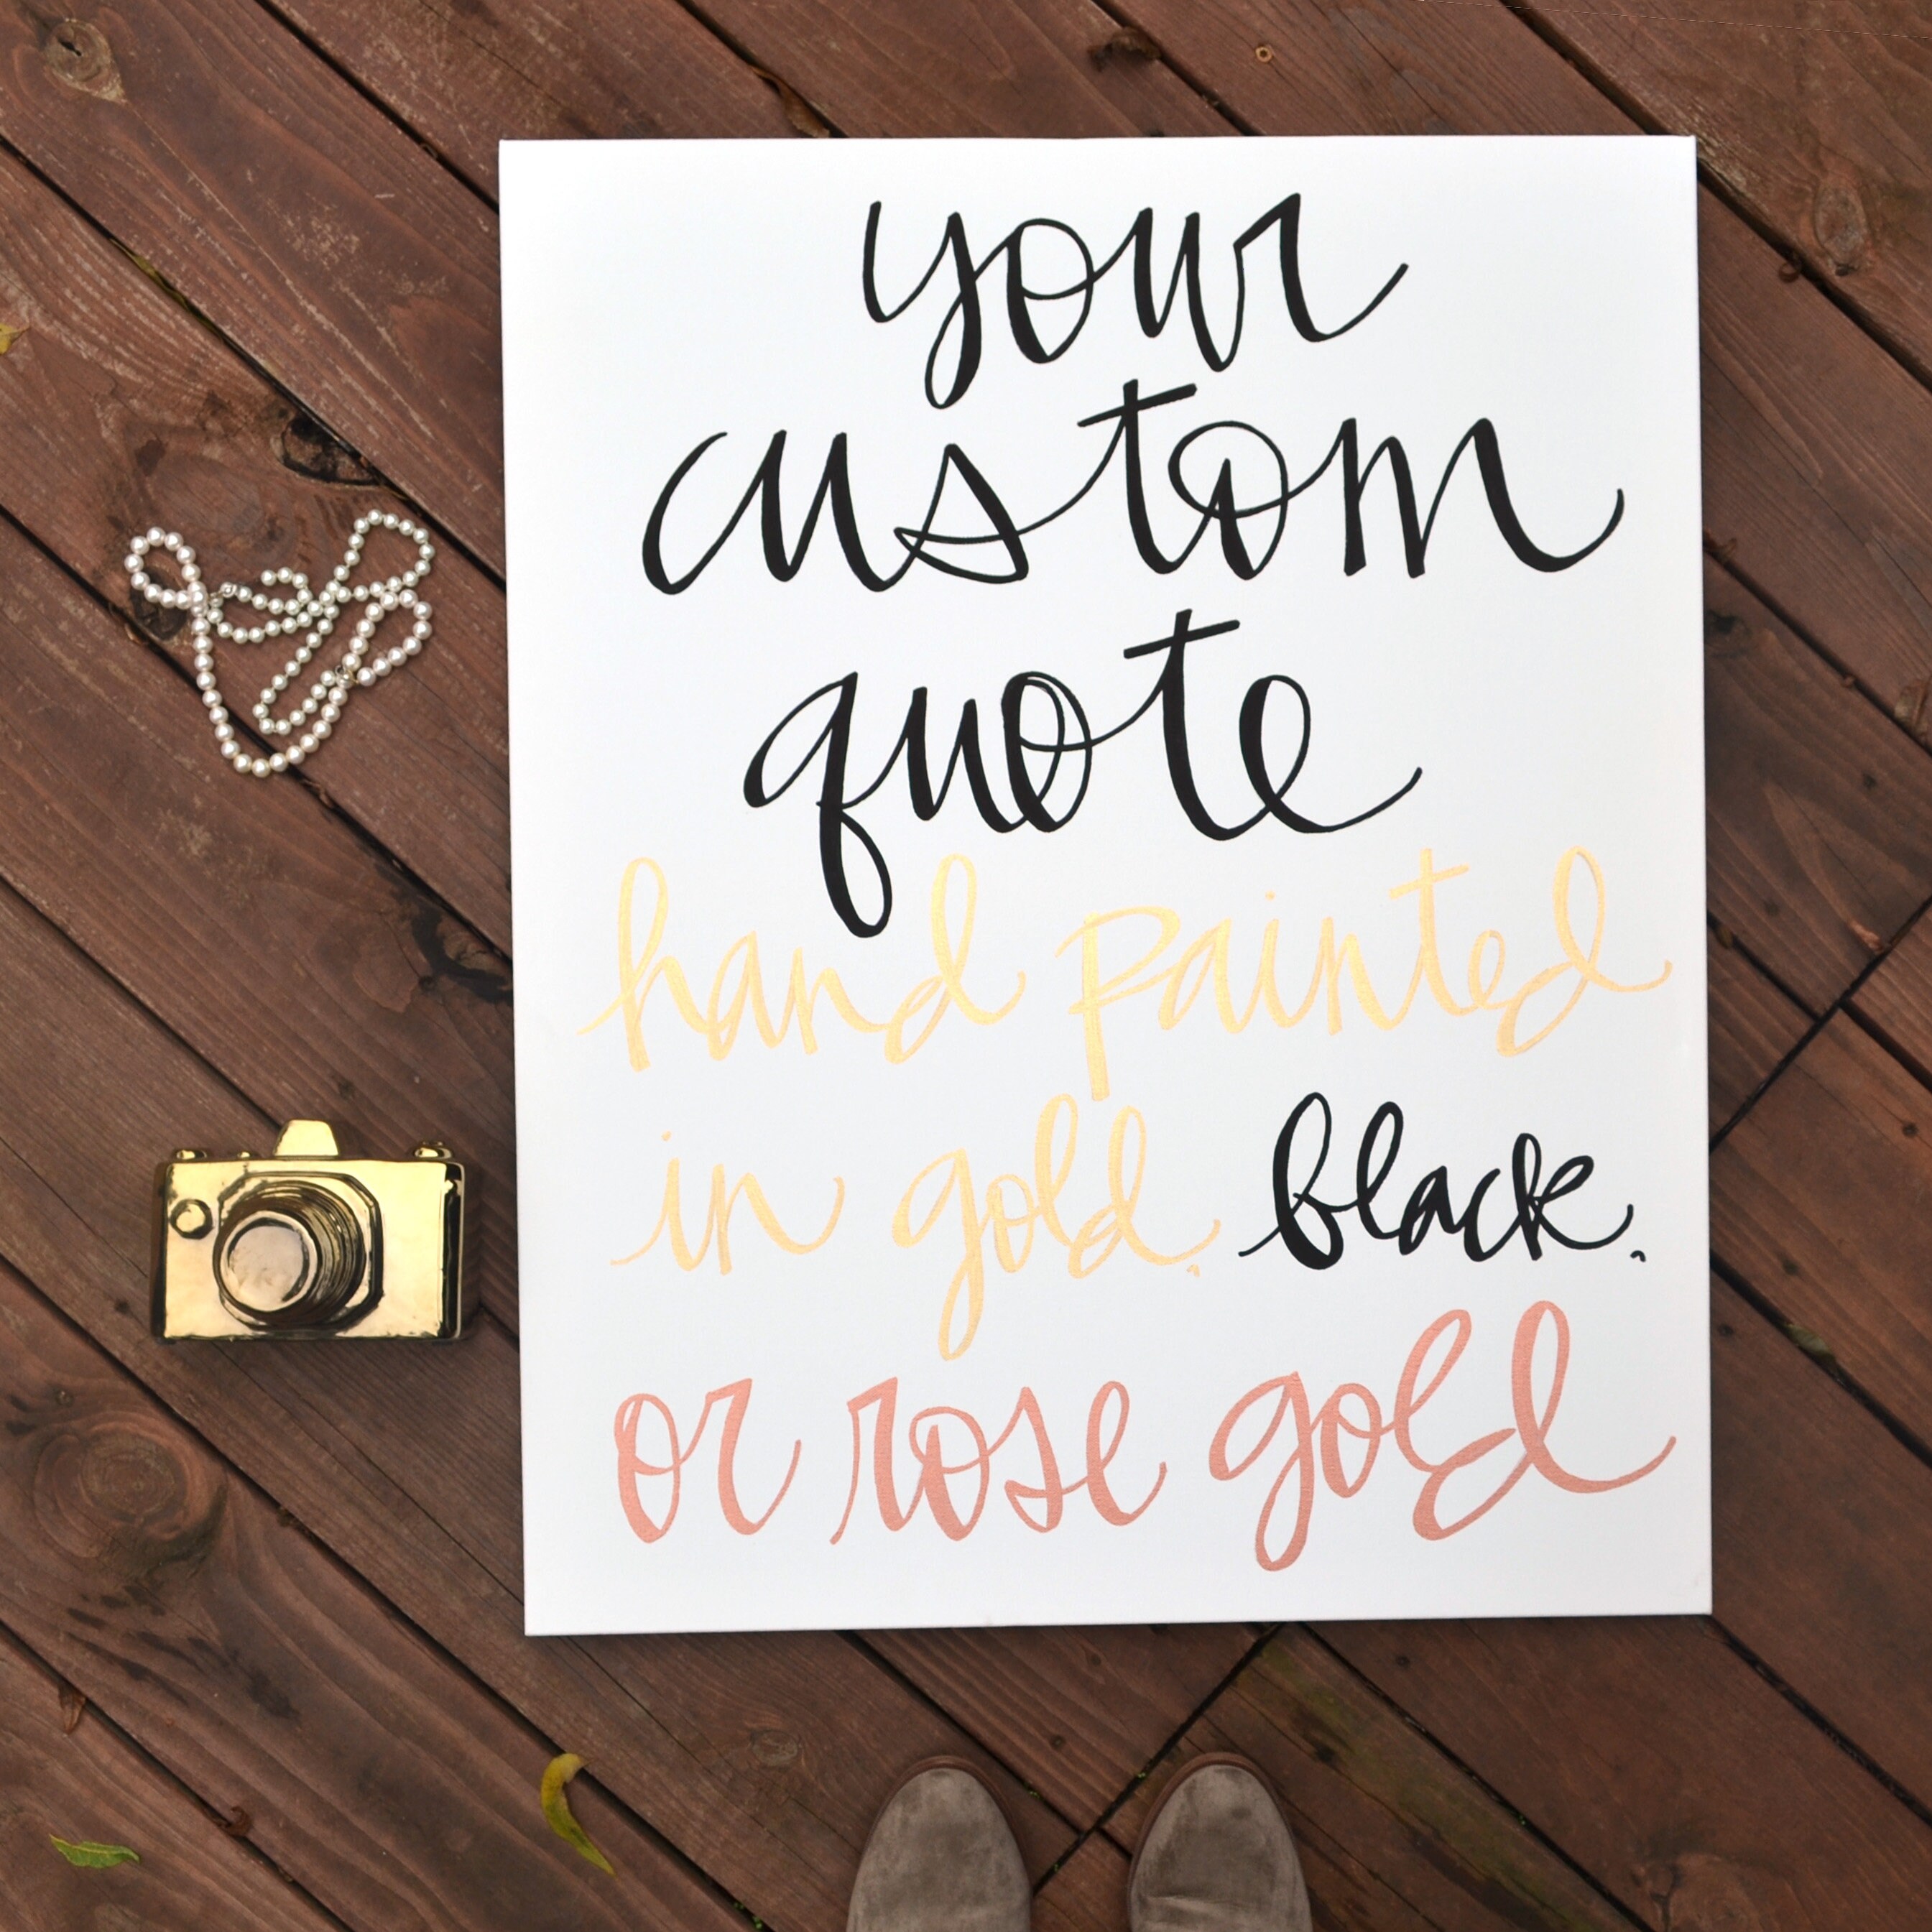 your
custom
quote
hand painted
in gold. black.
or rose gold